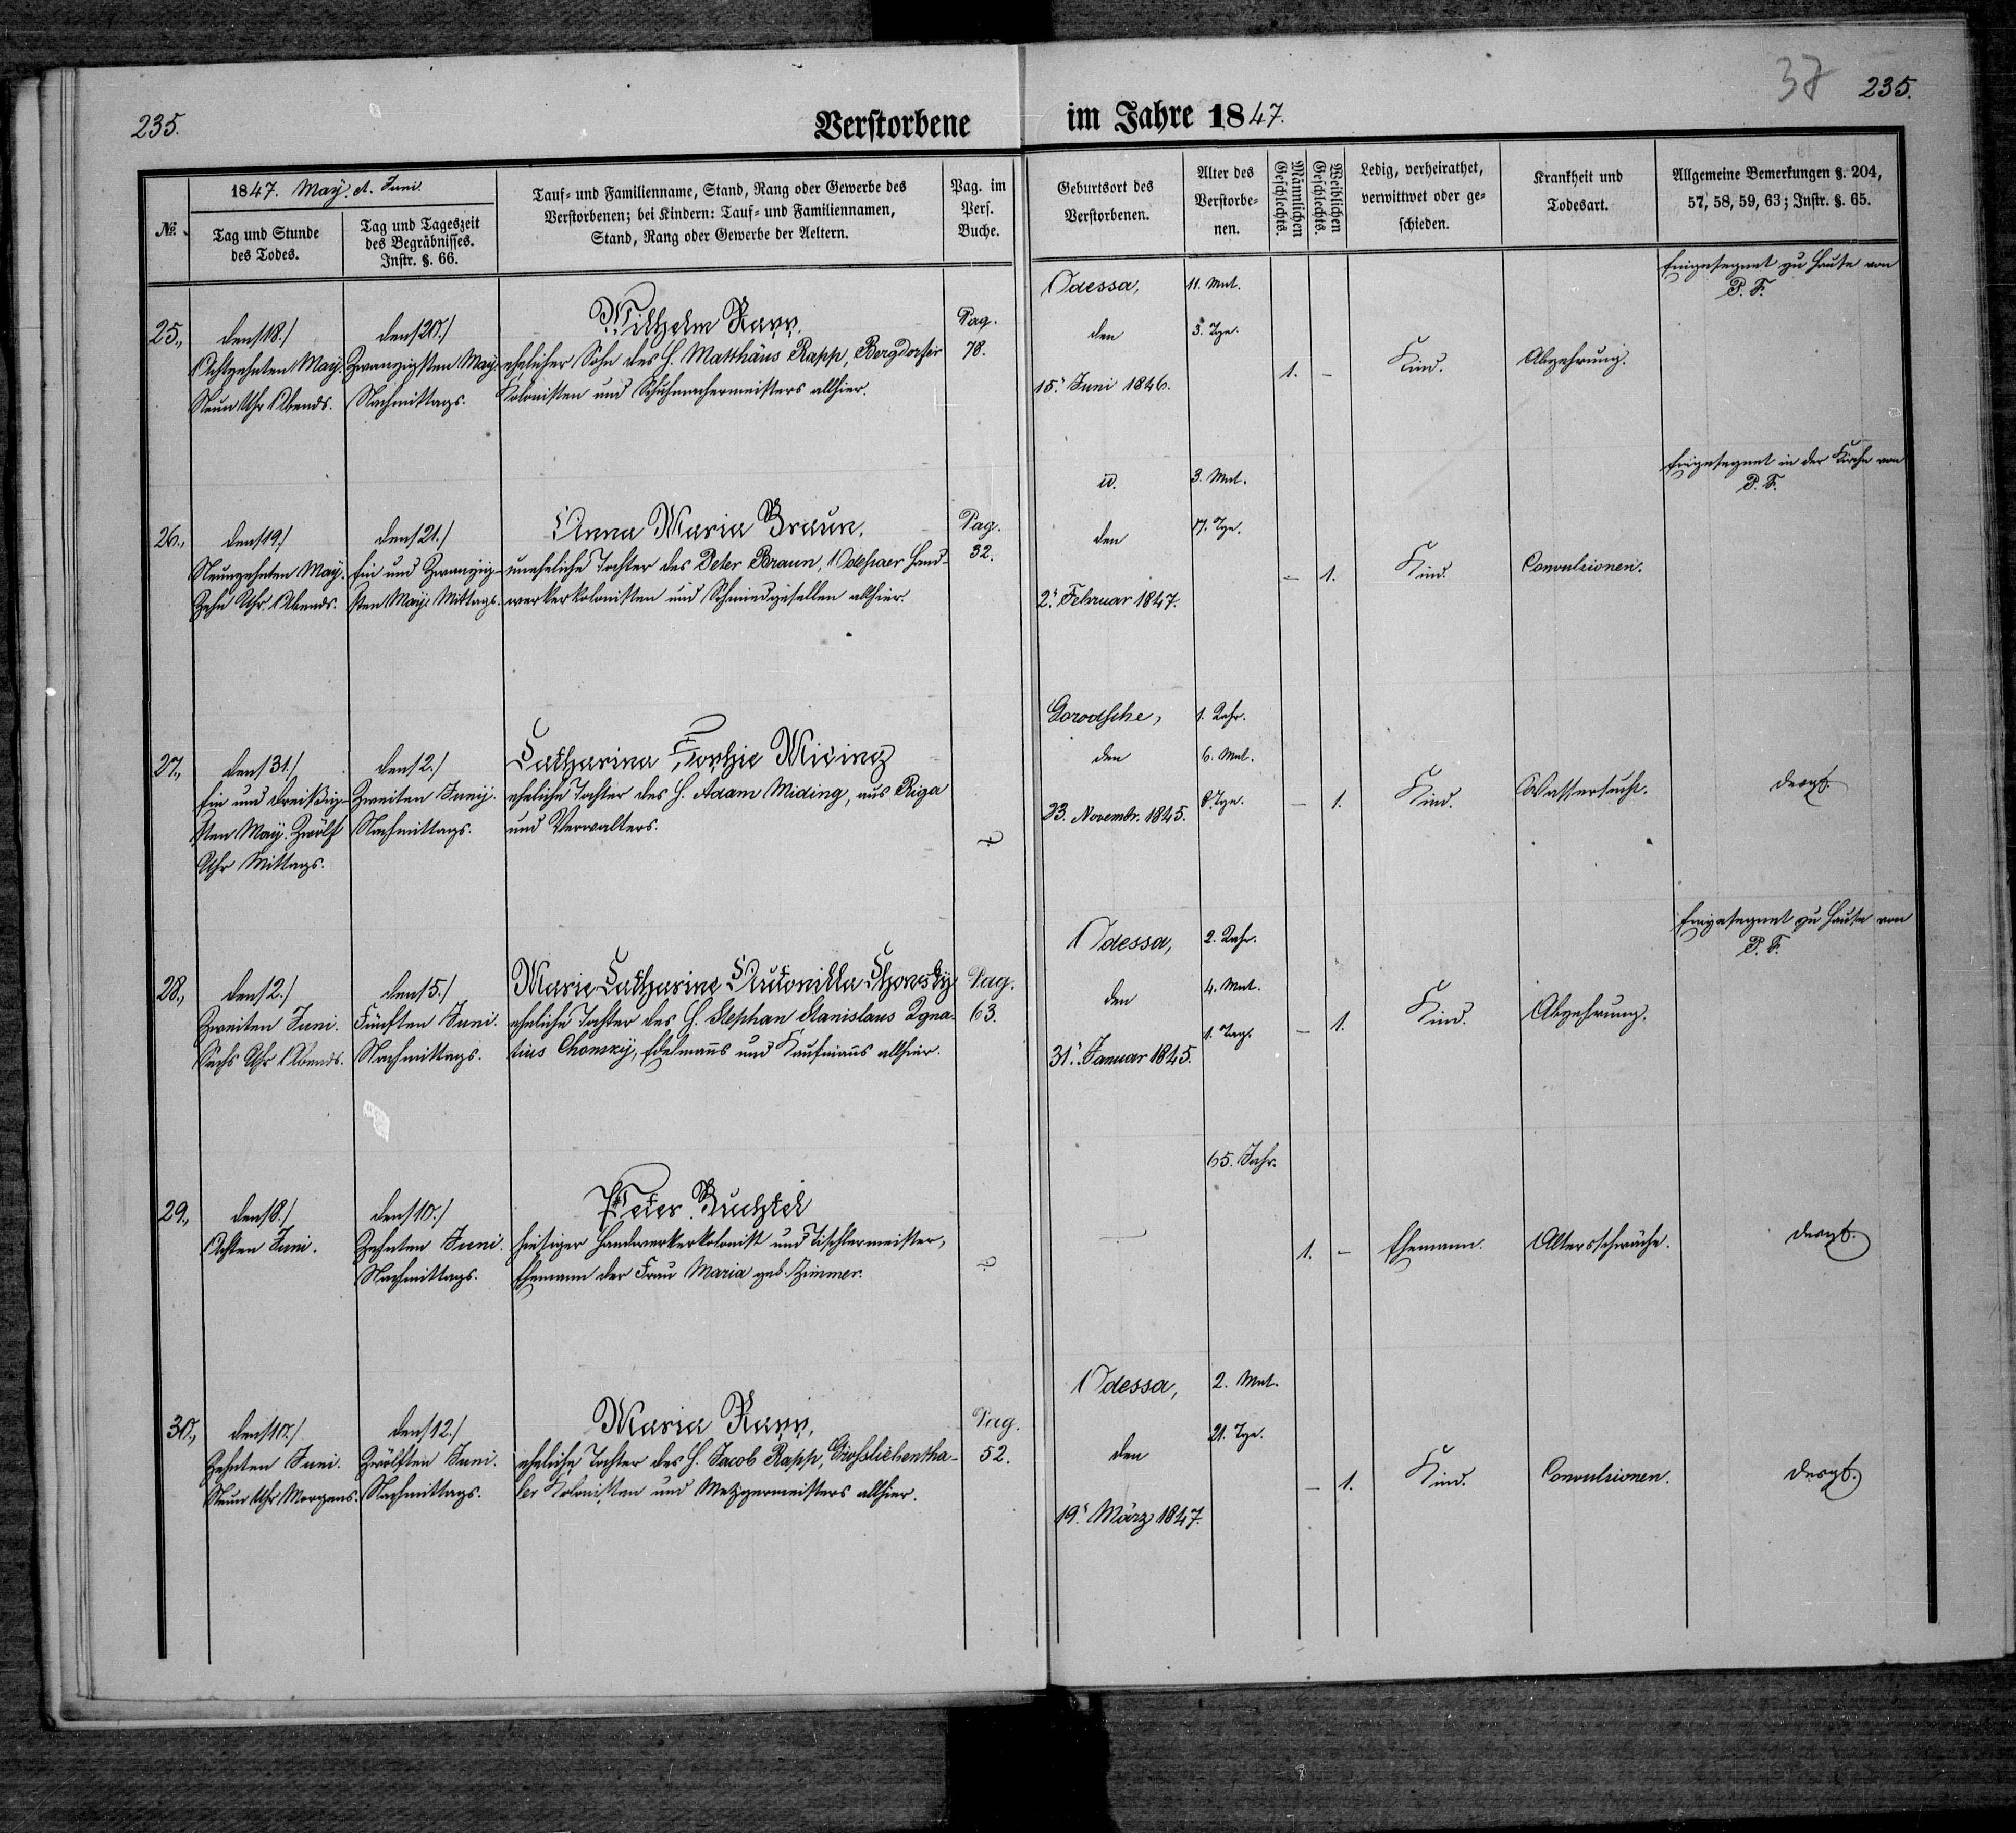 235.
Verstorbene
im Jahre 1847.
37
235.
№.
1847. May. et. Juni.
Tag und Stunde
des Todes.
Tag und Tageszeit
des Begräbnisses.
Instr. §. 66.
Tauf- und Familienname, Stand, Rang oder Gewerbe des
Verstorbenen; bei Kindern: Tauf- und Familiennamen,
Stand, Rang oder Gewerbe der Aeltern.
Pag. im
Pers.
Buche.
Geburtsort des
Verstorbenen.
Alter des
Verstorbe-
nen.
Männlichen
Geschlechts.
Weiblichen
Geschlechts.
Ledig, verheirathet,
verwittwet oder ge-
schieden.
Krankheit und
Todesart.
Allgemeine Bemerkungen §. 204,
57, 58, 59, 63; Instr. §. 65.
25.,
den 18./
Achtzehnten May.
Neun Uhr Abends.
den 20./
Zwanzigsten May.
Nachmittags.
Wilhelm Rapp.
ehelicher Sohn des H. Matthäus Rapp, Bergdorfer
Kolonisten und Schuhmachermeisters allhier.
Pag.
78.
Odessa,
den
15. Juni 1846.
11. Mnt.
3. Tge.
1.
-
Kind.
Abzehrung.
Eingesegnet zu Hause von
P. F.
26.,
den 19./
Neunzehnten May.
Zehn Uhr Abends.
den 21./
Ein und Zwanzig-
sten May. Mittags.
Anna Maria Braun.
uneheliche Tochter des Peter Braun, Odessaer Hand-
werkerkolonisten und Schmiedgesellen allhier.
Pag.
32.
id.
den
2. Februar 1847.
3. Mnt.
17. Tge.
-
1.
Kind.
Convulsionen.
Eingesegnet in der Kirche von
P. F.
27.,
den 31./
Ein und dreißig-
sten May. Zwölf
Uhr Mittags.
den 2./
Zweiten Junij.
Nachmittags.
Catharina Sophie Miding
eheliche Tochter des H. Adam Miding, aus Riga
und Verwalters.
Gorodsche,
den
23. Novembr. 1845.
1. Jahr.
6. Mnt.
8. Tge.
-
1.
Kind.
Wassersucht.
desgl.
28.,
den 2./
Zweiten Juni.
Sechs Uhr Abends.
den 5./
Fünften Juni.
Nachmittags.
Marie Catharine Antonilla Chonsky
eheliche Tochter des H. Stephan Stanislaus Igna-
tius Chonsky, Edelmanns und Kaufmanns allhier.
Pag.
63.
Odessa,
den
31. Januar 1845.
2. Jahr.
4. Mnt.
1. Tag.
-
1.
Kind.
Abzehrung.
Eingesegnet zu Hause von
P. F.
29.,
den 8./
Achten Juni.
den 10./
Zehnten Juni.
Nachmittags.
Peter Buchtel
hiesiger Handwerkerkolonist und Tischlermeister,
Ehemann der Frau Maria geb. Zimmer.
65. Jahr.
1.
-
Ehemann.
Altersschwäche.
desgl.
30.,
den 10./
Zehnten Juni.
Neun Uhr Morgens.
den 12./
Zwölften Juni.
Nachmittags.
Maria Rapp.
eheliche Tochter des H. Jacob Rapp, Grossliebentha-
ler Kolonisten und Metzgermeisters allhier.
Pag.
52.
Odessa,
den
19. März 1847.
2. Mnt.
21. Tge.
-
1.
Kind.
Convulsionen.
desgl.